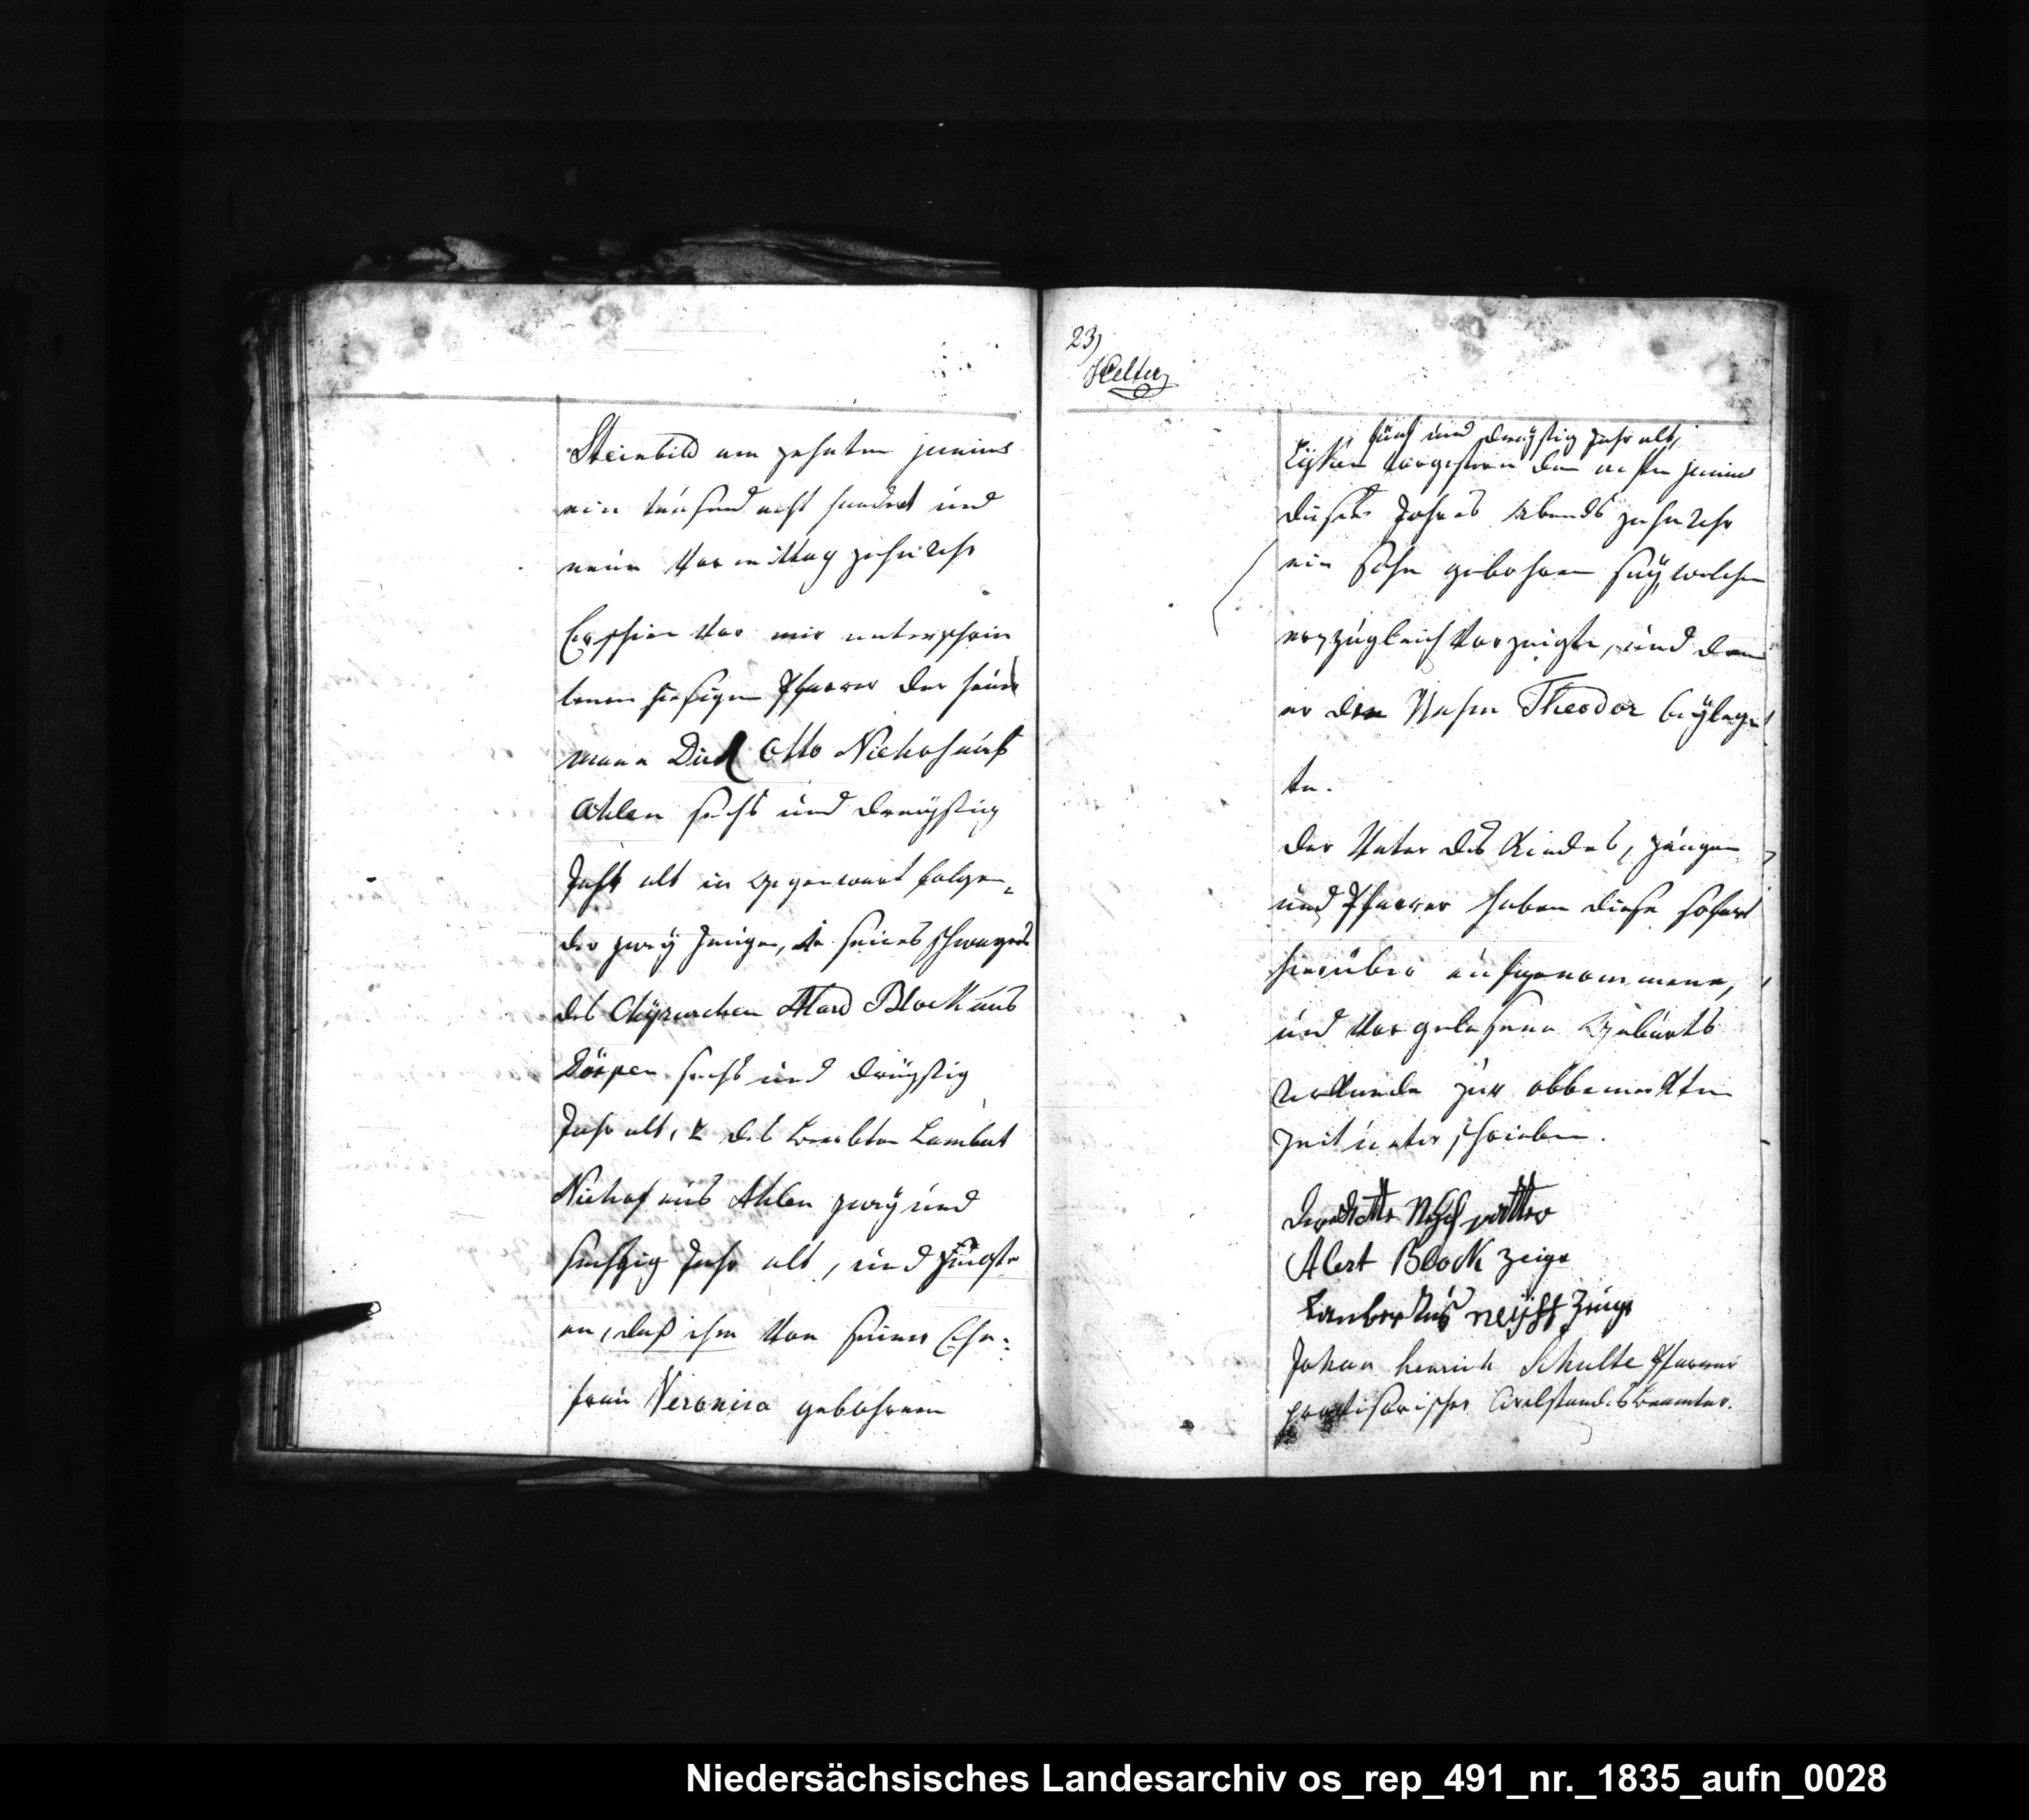 Steinbild am zehnten junius
ein tausend acht hundert und
neun Vormittag zehn Uhr
Erschien vor mir unterschrie
benen hiesigen Pfarrer der heur
mann Dirk Otto Niehof aus
Ahlen sechs und dreyßig
Jahr alt in Gegenwart folgen¬
der zwey Zeugen, seines schwagers
des Alard Block aus
Dörpen sechs und dreyßig
Jahr alt, 2 des Lambert
Niehof aus Ahlen zwey und
sechzig Jahr alt, und zeugte
an, daß ihm von seiner Ehe¬
frau Veronica gebohrnen
23)
fünf und dreyßig Jahr alt,
vorgestern den achten junius
dieses Jahres Abends zehn Uhr
ein Sohn gebohren sey, welchen
er zugleich vorzeigte, und dem
er den Nahm Theodor beyleg
te.
der Vater des Kindes, zeugen
und Pfarrer haben diese sofort
hierüber aufgenommene,
und vorgelesene Geburts
urkunde zur obbemerkten
zeit unterschrieben.
Alert Block zeige
Lambertus zeuge
Johan henrich Schulte Pfarrer
provisorischer Civilstandsbeamter.
Niedersächsisches Landesarchiv os_rep_491_nr._1835_aufn_0028